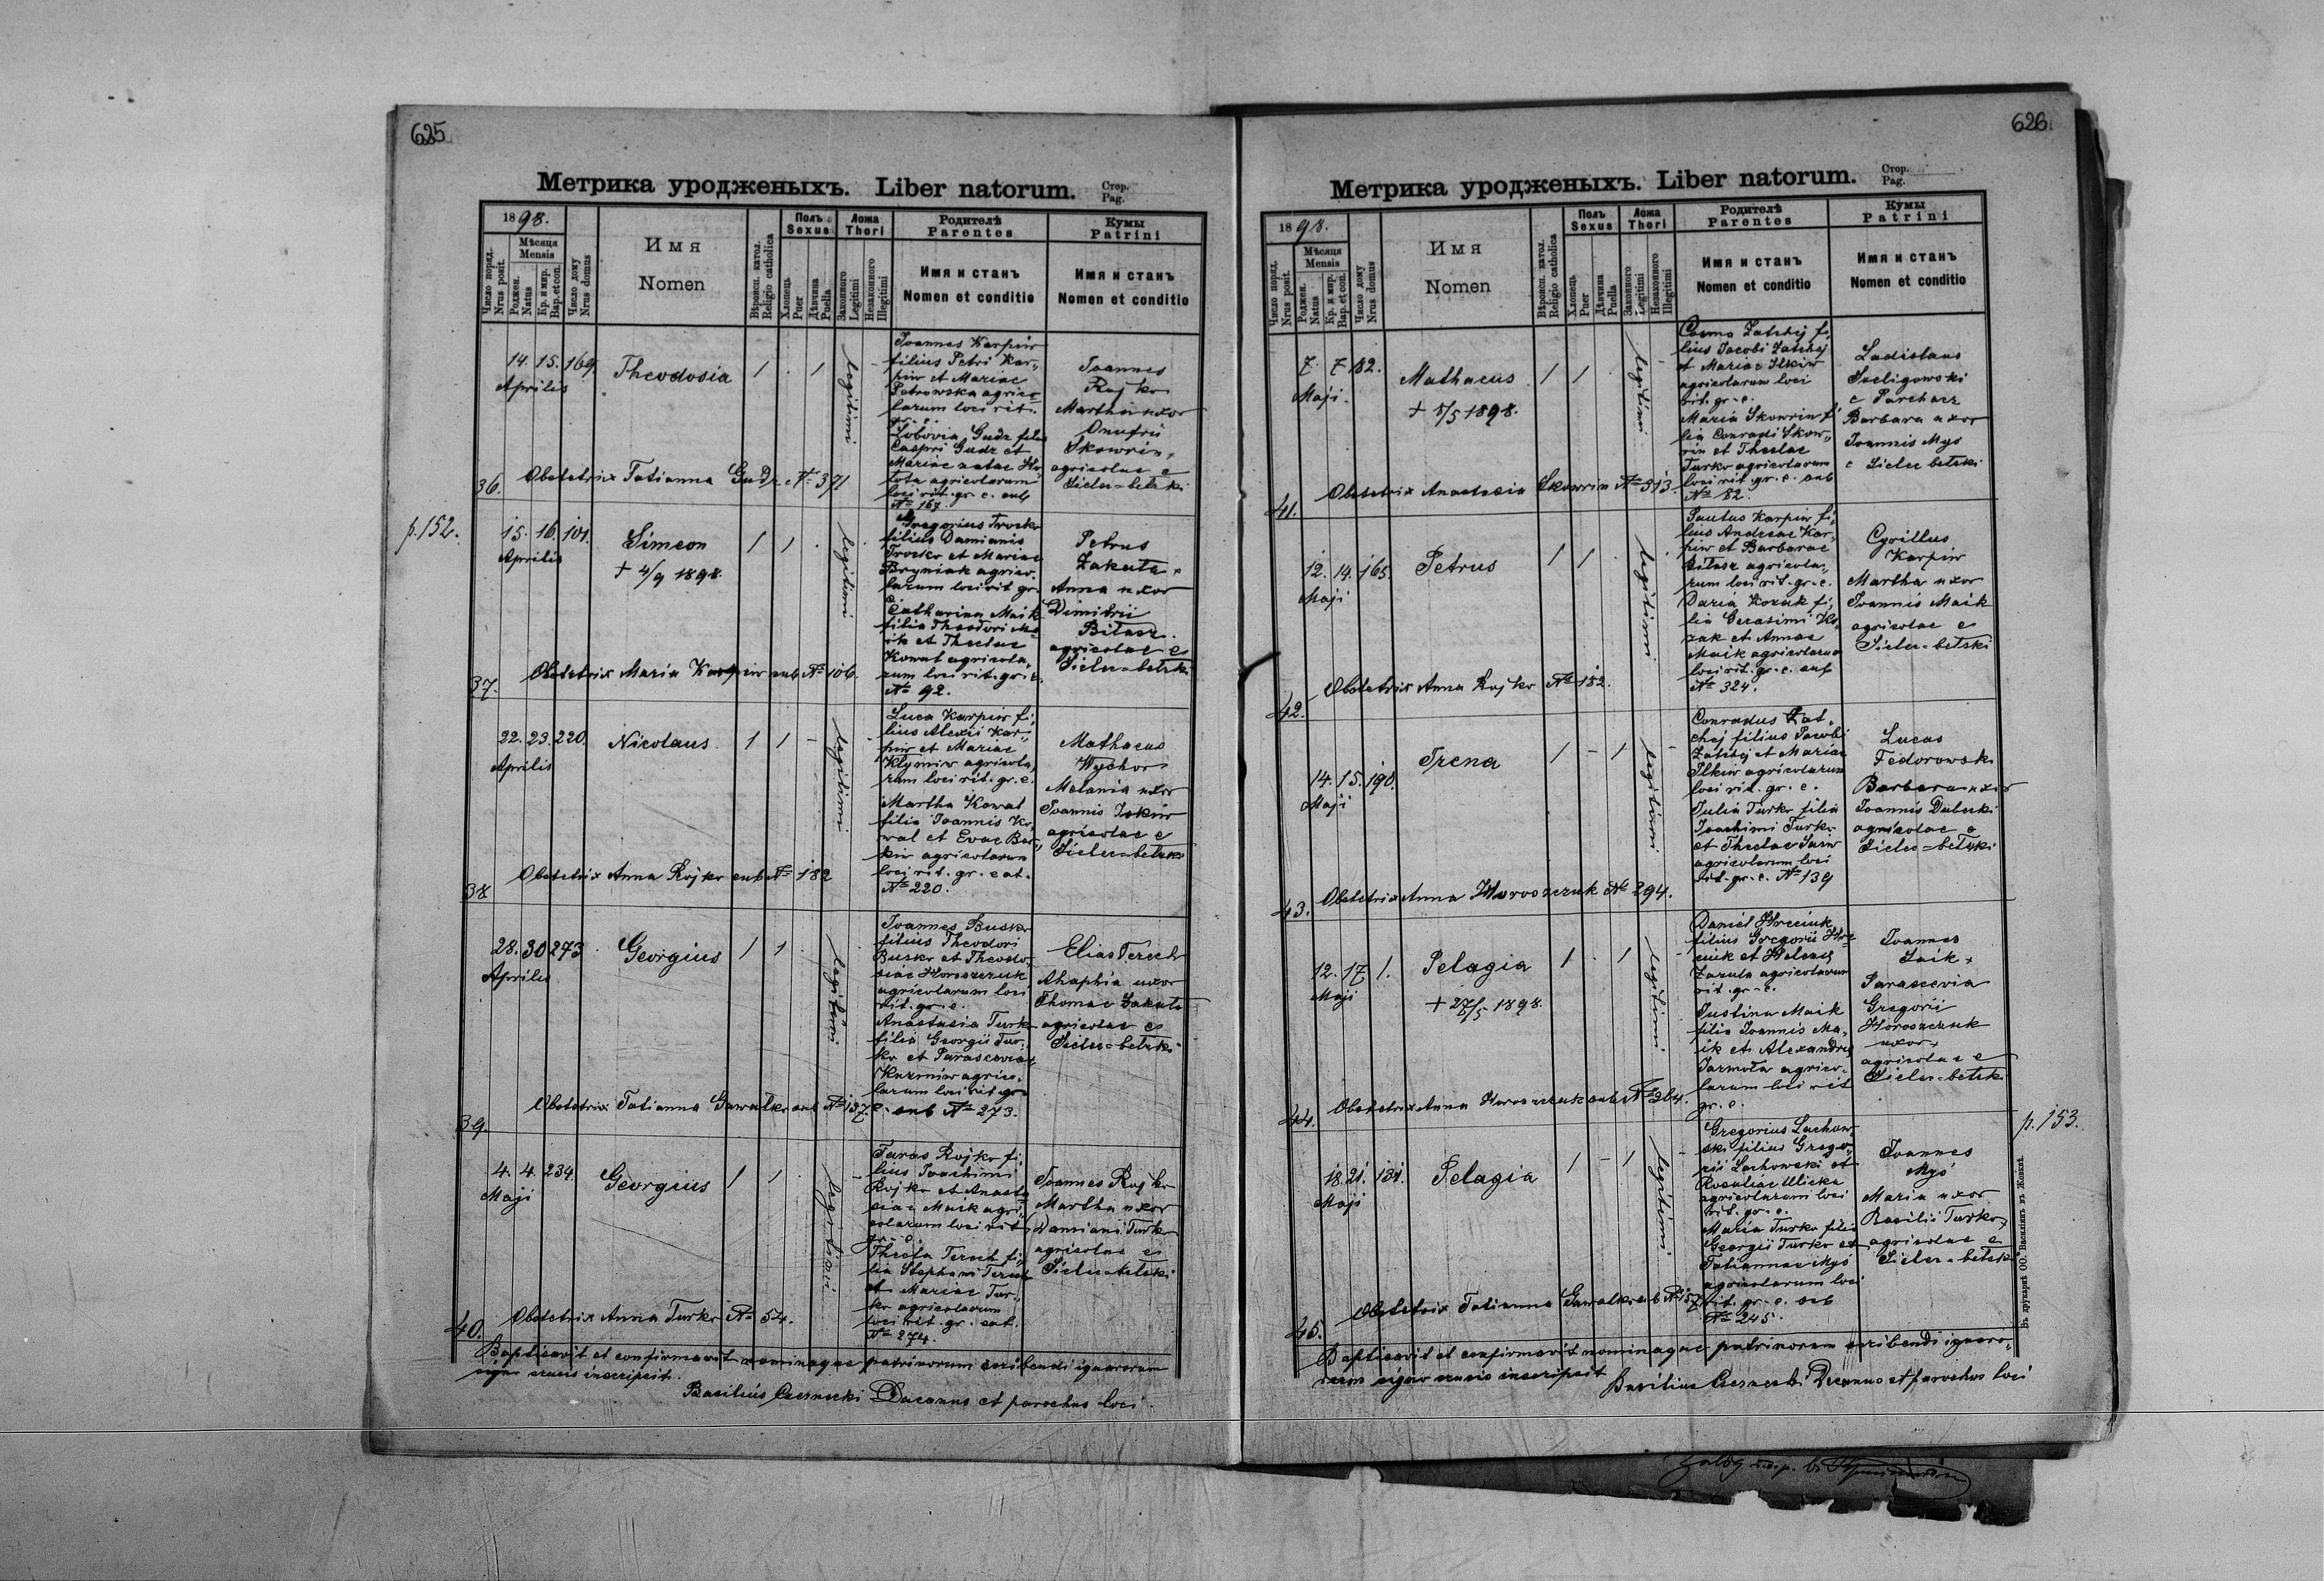 625
Метрика уродженыхъ. Liber natorum. Стор. Pag.
1898.
Число поряд. Nrus posit.
Мѣсяця Mensis
Рожден. Natus
Кр. и мир. Bap. et con.
Число дому Nrus domus
Имя
Nomen
Вѣроисп. катол. Religio catholica
Полъ Sexus
Хлопець Puer
Дѣвчина Puella
Ложа Thori
Законного Legitimi
Незаконного Illegitimi
Родителѣ
Parentes
Имя и станъ
Nomen et conditio
Кумы
Patrini
Имя и станъ
Nomen et conditio
36.
14. 15. 169.
Aprilis
Theodosia
1 . 1
legitimi
Joannes Karpiw
filius Petri Kar„
piw et Mariae
Petrowska agrico
larum loci rit.
gr. c.
Lobovia Gudz filia
Caspri Gudz et
Mariae natae
agricolarum
loci rit. gr. c. sub
№ 169.
Joannes
Rojko
Martha uxor
Onufrii
Skowrin,
agricolae e
Sielec-bełzki
Obstetrix Tatianna Gudz № 371
p. 152.
37.
15. 16. 101.
Aprilis
Simeon
+ 4/9 1898.
1 1 .
legitimi
Gregorius Trocko
filius Damianis
Trocko et Mariae
Bryniak agrico„
larum loci rit gr.
c.
Catharina Maik
filia Theodori Ma
ik et Theclae
Kowal agricola„
rum loci rit. gr. c.
№ 92.
Petrus
Zakuta
Anna uxor
Dimitrii
Biłasz
agricolae e
Sielec-bełzki
Obstetrix Maria Karpiw sub № 106.
38
22. 23. 220.
Aprilis
Nicolaus
1 1 -
legitimi
Luca Karpiw fi„
lius Alexii Kar„
piw et Mariae
Klymiw agricola
rum loci rit. gr. c.
Martha Kowal
filia Joannis Ko„
wal et Evae Bos„
kiw agricolarum
loci rit. gr. cat.
№ 220.
Mathaeus
Wychor
Melania uxor
Joannis Iskiw
agricolae e
Sielec-bełzki
Obstetrix Anna Rojko sub № 182
39.
28. 30 273
Aprilis
Georgius
1 1
legitimi
Joannes Busko
filius Theodori
Busko et Theodo„
siae Horoszczuk
agricolarum loci
rit. gr. c.
Anastasia Turko
filia Georgii Tur„
ko et Parasceviae
Kuzmiw agrico„
larum loci rit gr.
c. sub № 273.
Elias Terech
Ahaphia uxor
Thomae Zakuta
agricolae e
Sielec-bełzki
Obstetrix Tatianna Gawałko sub № 137
40.
4. 4. 234.
Maji
Georgius
1 1
legitimi
Taras Rojko fi„
lius Joachimi
Rojko et Anasta
siae Maik agri„
colarum loci rit.
gr. c.
Thecla Terech fi„
lia Stephani Terech
et Mariae Tur„
ko agricolarum
loci rit. gr. cat.
№ 274.
Joannes Rojko
Martha uxor
Damiani Turko
agricolae e
Sielec-bełzki
Obstetrix Anna Turko № 54.
Baptisavit et confirmavit nominaque patrinorum scribendi ignarorum
signo crucis inscripsit.
Basilius Czernecki Decanus et parochus loci.
626
Метрика уродженыхъ. Liber natorum. Стор. Pag.
1898.
Число поряд. Nrus posit.
Мѣсяця Mensis
Рожден. Natus
Кр. и мир. Bap. et con.
Число дому Nrus domus
Имя
Nomen
Вѣроисп. катол. Religio catholica
Полъ Sexus
Хлопець Puer
Дѣвчина Puella
Ложа Thori
Законного Legitimi
Незаконного Illegitimi
Родителѣ
Parentes
Имя и станъ
Nomen et conditio
Кумы
Patrini
Имя и станъ
Nomen et conditio
41.
7. 7 82.
Maji.
Mathaeus
+ 8/5 1898.
1 1
legitimi
Cosma Zatchej fi„
lius Jacobi Zatchej
et Mariae Ilkiw
agricolarum loci
rit. gr. c.
Maria Skowrin fi
lia Conradi Skow„
rin et Theclae
Turko agricolarum
loci rit. gr. c. sub
№ 82.
Ladislaus
Szeligowski
e Parchacz
Barbara uxor
Joannis Myś
e Sielec bełzki
Obstetrix Anastasia Skowrin № 313.
42.
12. 14. 165.
Maji
Petrus
1 1
legitimi
Paulus Karpiw fi„
lius Andreae Kar„
piw et Barbarae
Biłasz agricola„
rum loci rit. gr. c.
Daria Kozak fi„
lia Gerasimi Ko„
zak et Annae
Maik agricolarum
loci rit. gr. c. sub
№ 324.
Cyrillus
Karpiw
Martha uxor
Joannis Maik
agricolae e
Sielec-bełzki
Obstetrix Anna Rojko № 182.
43.
14. 15. 190.
Maji
Irena
1 - 1
legitimi
Conradus Zat„
chej filius Jacobi
Zatchej et Mariae
Ilkiw agricolarum
loci rit. gr. c.
Julia Turko filia
Joachimi Turko
et Theclae
agricolarum loci
rit. gr. c. № 139
Lucas
Fedorowski
Barbara uxor
Joannis Dubecki
agricolae e
Sielec-bełzki
Obstetrix Anna Horoszczuk № 294.
44.
12. 17 1.
Maji
Pelagia
+ 27/5 1898.
1 . 1
legitimi
Daniel Hreciuk
filius Gregorii Hre
ciuk et Helenae
Zaruta agricolarum
rit. gr. c.
Justina Maik
filia Joannis Ma„
ik et Alexandrae
Jarmoła agrico„
larum loci rit
gr. c.
Joannes
Saik
Parascevia
Gregorii
Horoszczuk
uxor,
agricolae e
Sielec-bełzki
Obstetrix Anna Horoszczuk sub № 264.
p. 153.
45.
18. 21. 131.
Maji
Pelagia
1 - 1
legitimi
Gregorius Lachow„
ski filius Grego„
rii Lachowski et
Rosaliae Ulicka
agricolarum loci
rit. gr. c.
Maria Turko filia
Georgii Turko et
Tatiannae Myś
agricolarum loci
rit. gr. c. sub
№ 245.
Joannes
Myś
Maria uxor
Basilii Turko,
agricolae e
Sielec-bełzki
Obstetrix Tatianna Gawałko sub № 157
Baptisavit et confirmavit nominaque patrinorum scribendi ignaro„
rum signo crucis inscripsit
Basilius Czernecki Decanus et parochus loci
Въ друкарнѣ ОО. Василіянъ въ Жовквѣ.